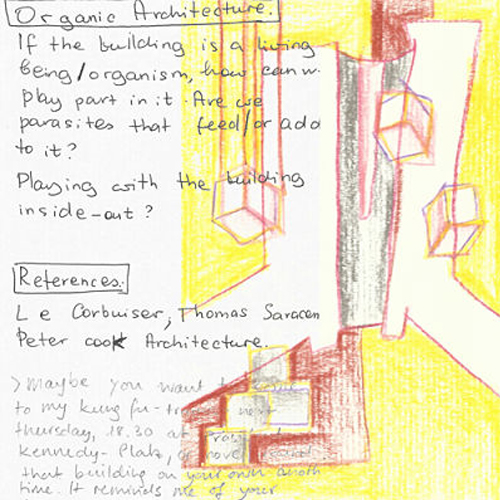 Organic Architecture.
If the building is a living
being/organism, how can w
play part in it. Are we
parasites that feed/or add
to it?
Playing with the building
inside-out?
References.
Le Corbuiser, Thomas Saracen
Peter cook Architecture.
> Maybe you want to come
to my kung fu-tr next
thursday, 18.30 at
Kennedy-Platz, or
that building on your own anoth
time. It reminds me of your